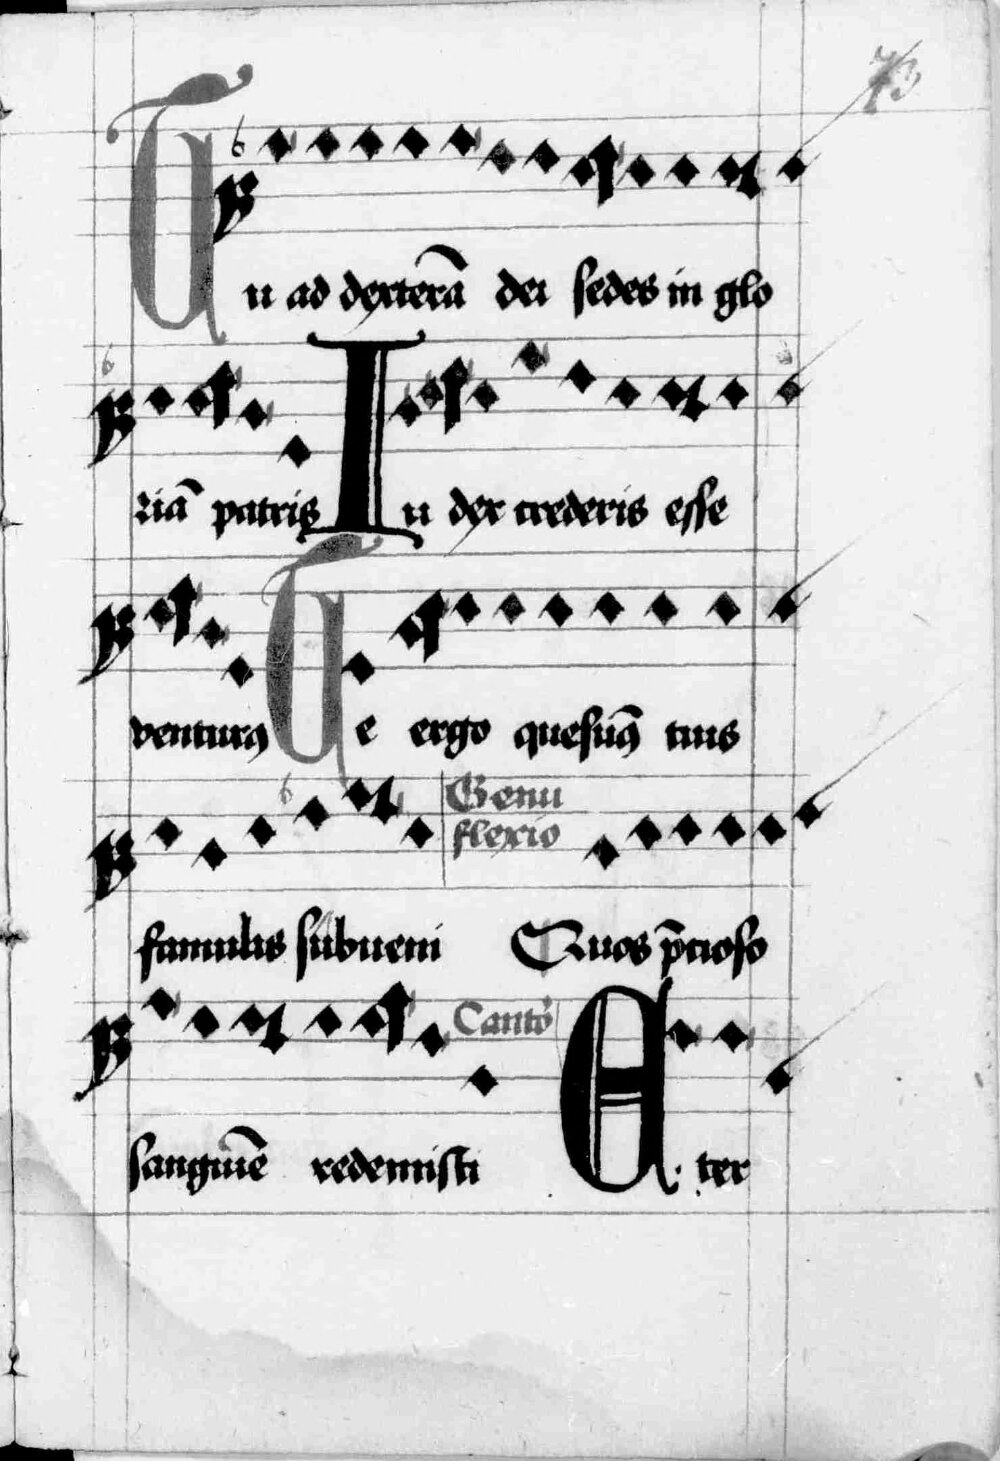 73
Tu ad dexterā dei sedes in glo
riā patris Iudex crederis esse
venturꝰ Te ergo quesuꝰ tuis
Genu
flexio
famulis subueni Quos p̄cioso
Cantō
sanguīe redemisti Eter